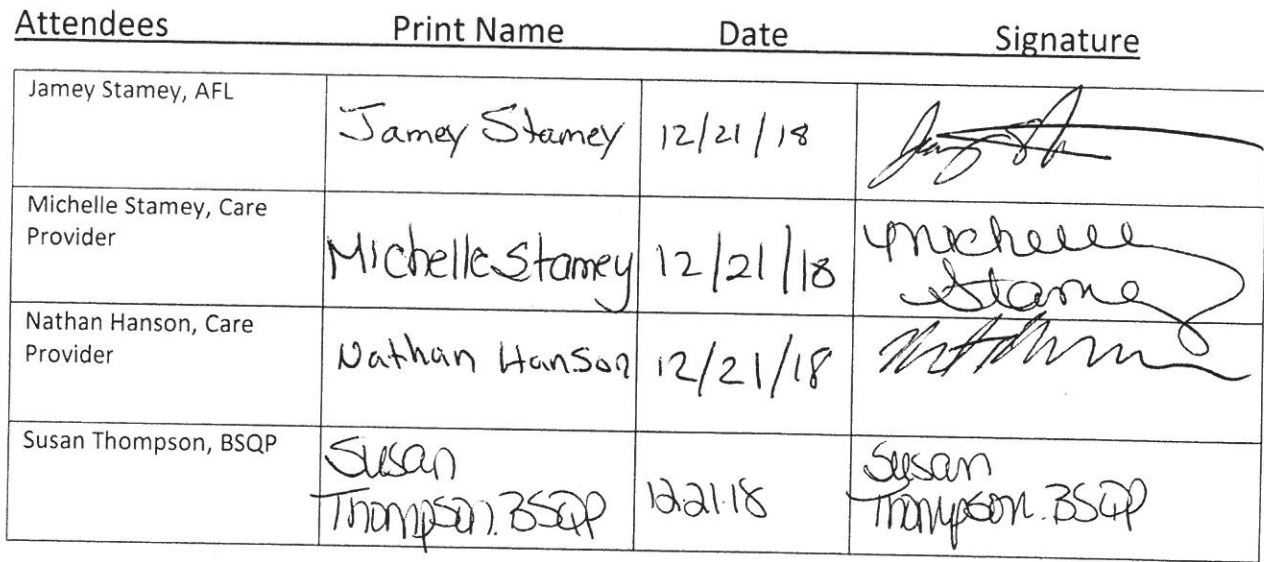 Attendees Print Name Date Signature
Jamey Stamey, AFL
Jamey Stamey 12/21/18
Michelle Stamey, Care
Provider
Michelle Stamey 12/21/18 Michelle
Stamey
Nathan Hanson, Care
Provider
Nathan Hanson 12/21/18
Susan Thompson, BSQP
Susan
Thompson. BSQP 12.21.18 Susan
Thompson. BSQP